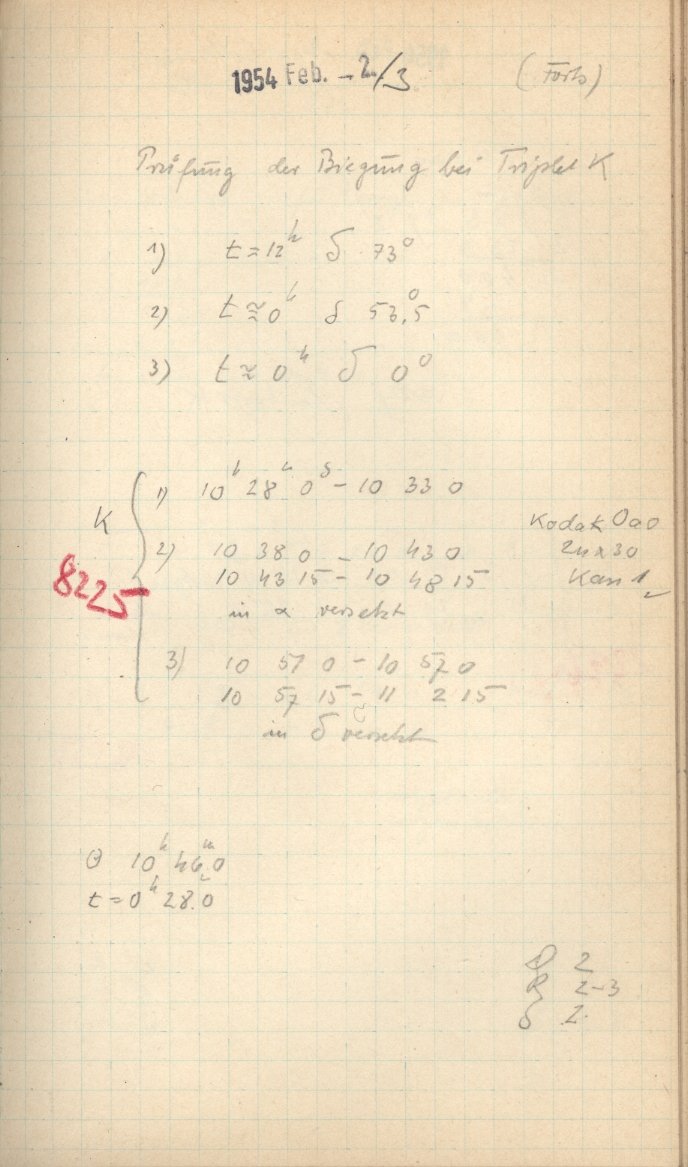 1954 Feb. -2/3 (Forts)
Prüfung der Biegung bei Triplet K
1) t = 12h δ 73°
2) t ≈ 0h δ 53,5°
3) t ≈ 0h δ 0°
K
8225
1) 10h 28m 0s - 10 33 0
2) 10 38 0 - 10 43 0
10 43 15 - 10 48 15
in α versetzt
Kodak 0a0
24 x 30
3) 10 51 0 - 10 57 0
10 57 15 - 11 2 15
in δ versetzt
Θ 10h 46m.0
t = 0h 28.0
D 2
R 2-3
S 2